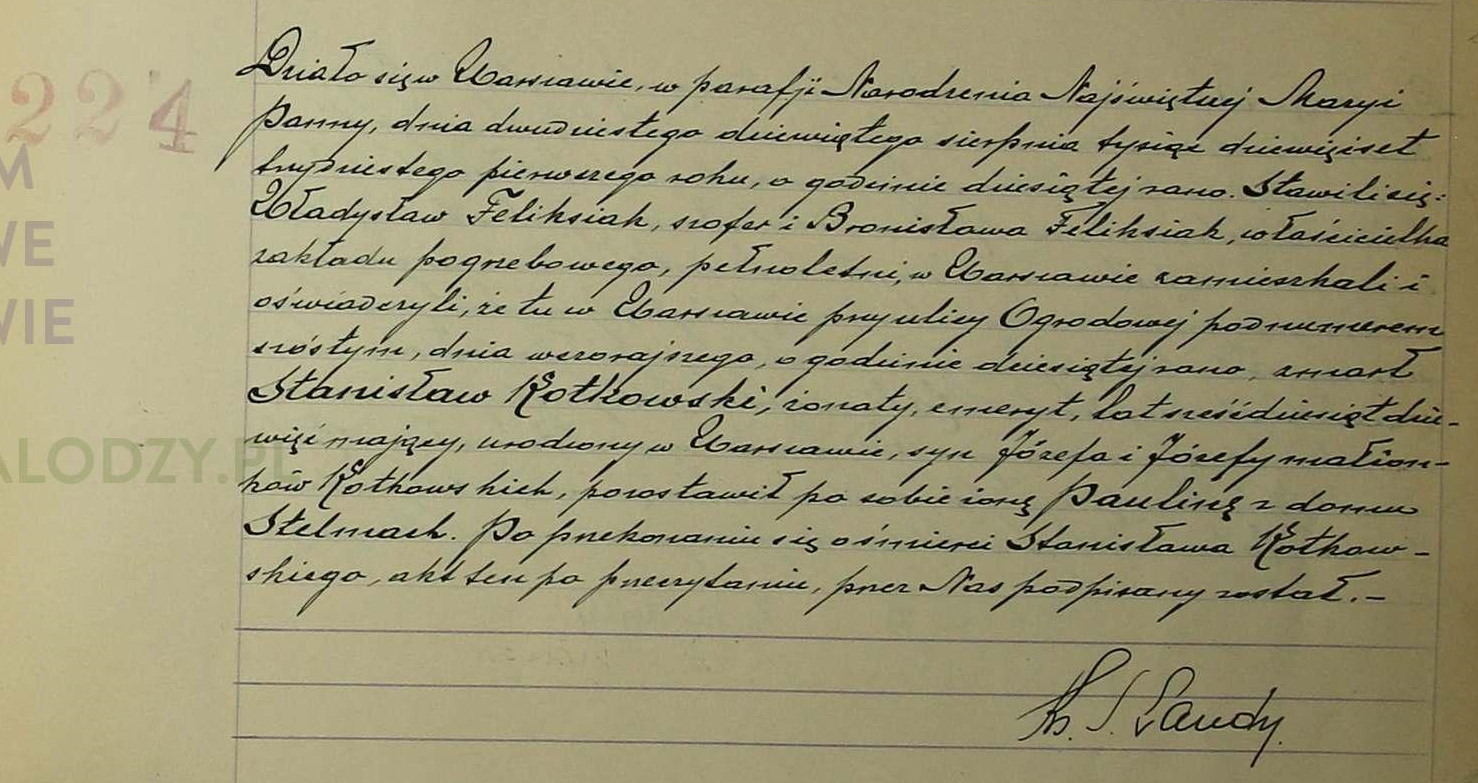 224
M
WE
WIE
ALODZY.PL
Działo się w Warszawie, w parafji Narodzenia Najświętszej Maryi
Panny, dnia dwudziestego dziewiątego sierpnia tysiąc dziewięćset
trzydziestego pierwszego roku, o godzinie dziesiątej rano. Stawili się:
Władysław Feliksiak, szofer i Bronisława Feliksiak, właścicielka
zakładu pogrzebowego, pełnoletni, w Warszawie zamieszkali i
oświadczyli, że tu w Warszawie przy ulicy Ogrodowej pod numerem
szóstym, dnia wczorajszego, o godzinie dziesiątej rano, zmarł
Stanisław Kotkowski, żonaty, emeryt, lat sześćdziesiąt dzie-
więć mający, urodzony w Warszawie, syn Józefa i Józefy małżon-
ków Kotkowskich, pozostawił po sobie żonę Paulinę z domu
Stelmach. Po przekonaniu się o śmierci Stanisława Kotkow-
skiego, akt ten po przeczytaniu, przez Nas podpisany został.-
Ks. S. Landy